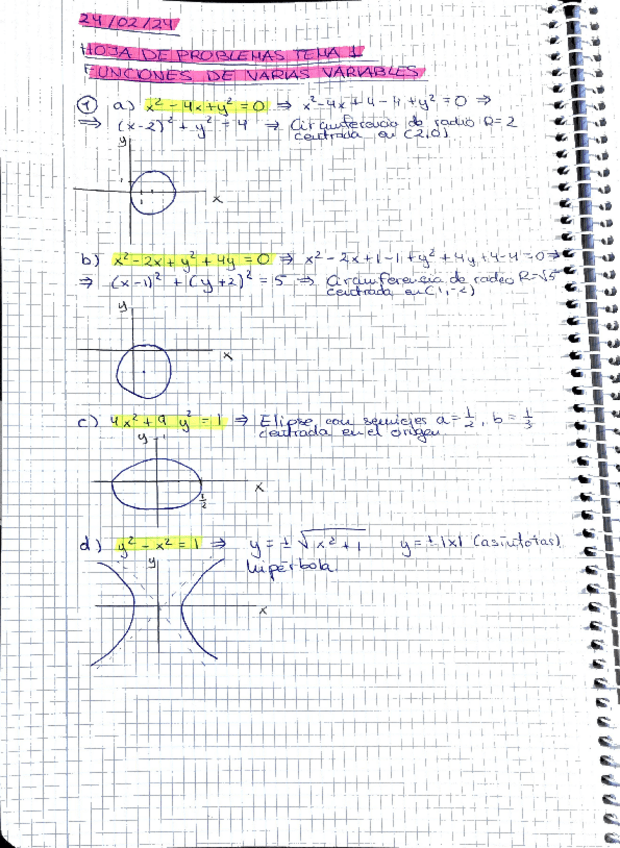 24/02/24
HOJA DE PROBLEMAS TEMA 1
FUNCIONES DE VARIAS VARIABLES
① a) x²-4x+y²=0 ⇒ x²-4x+4-4+y²=0 ⇒
⇒ (x-2)²+y²=4 ⇒ Circunferencia de radio R=2
centrada en (2,0)
y
x
b) x²-2x+y²+4y=0 ⇒ x²-2x+1-1+y²+4y+4-4=0⇒
⇒ (x-1)²+(y+2)²=5 ⇒ Circunferencia de radio R=√5
centrada en (1,-2)
y
x
c) 4x²+9y²=1 ⇒ Elipse con semiejes a=1/2, b=1/3
centrada en el origen.
y
x
1/2
d) y²-x²=1 ⇒ y=±√x²+1 y=±|x| (asíntotas)
hipérbola.
y
x